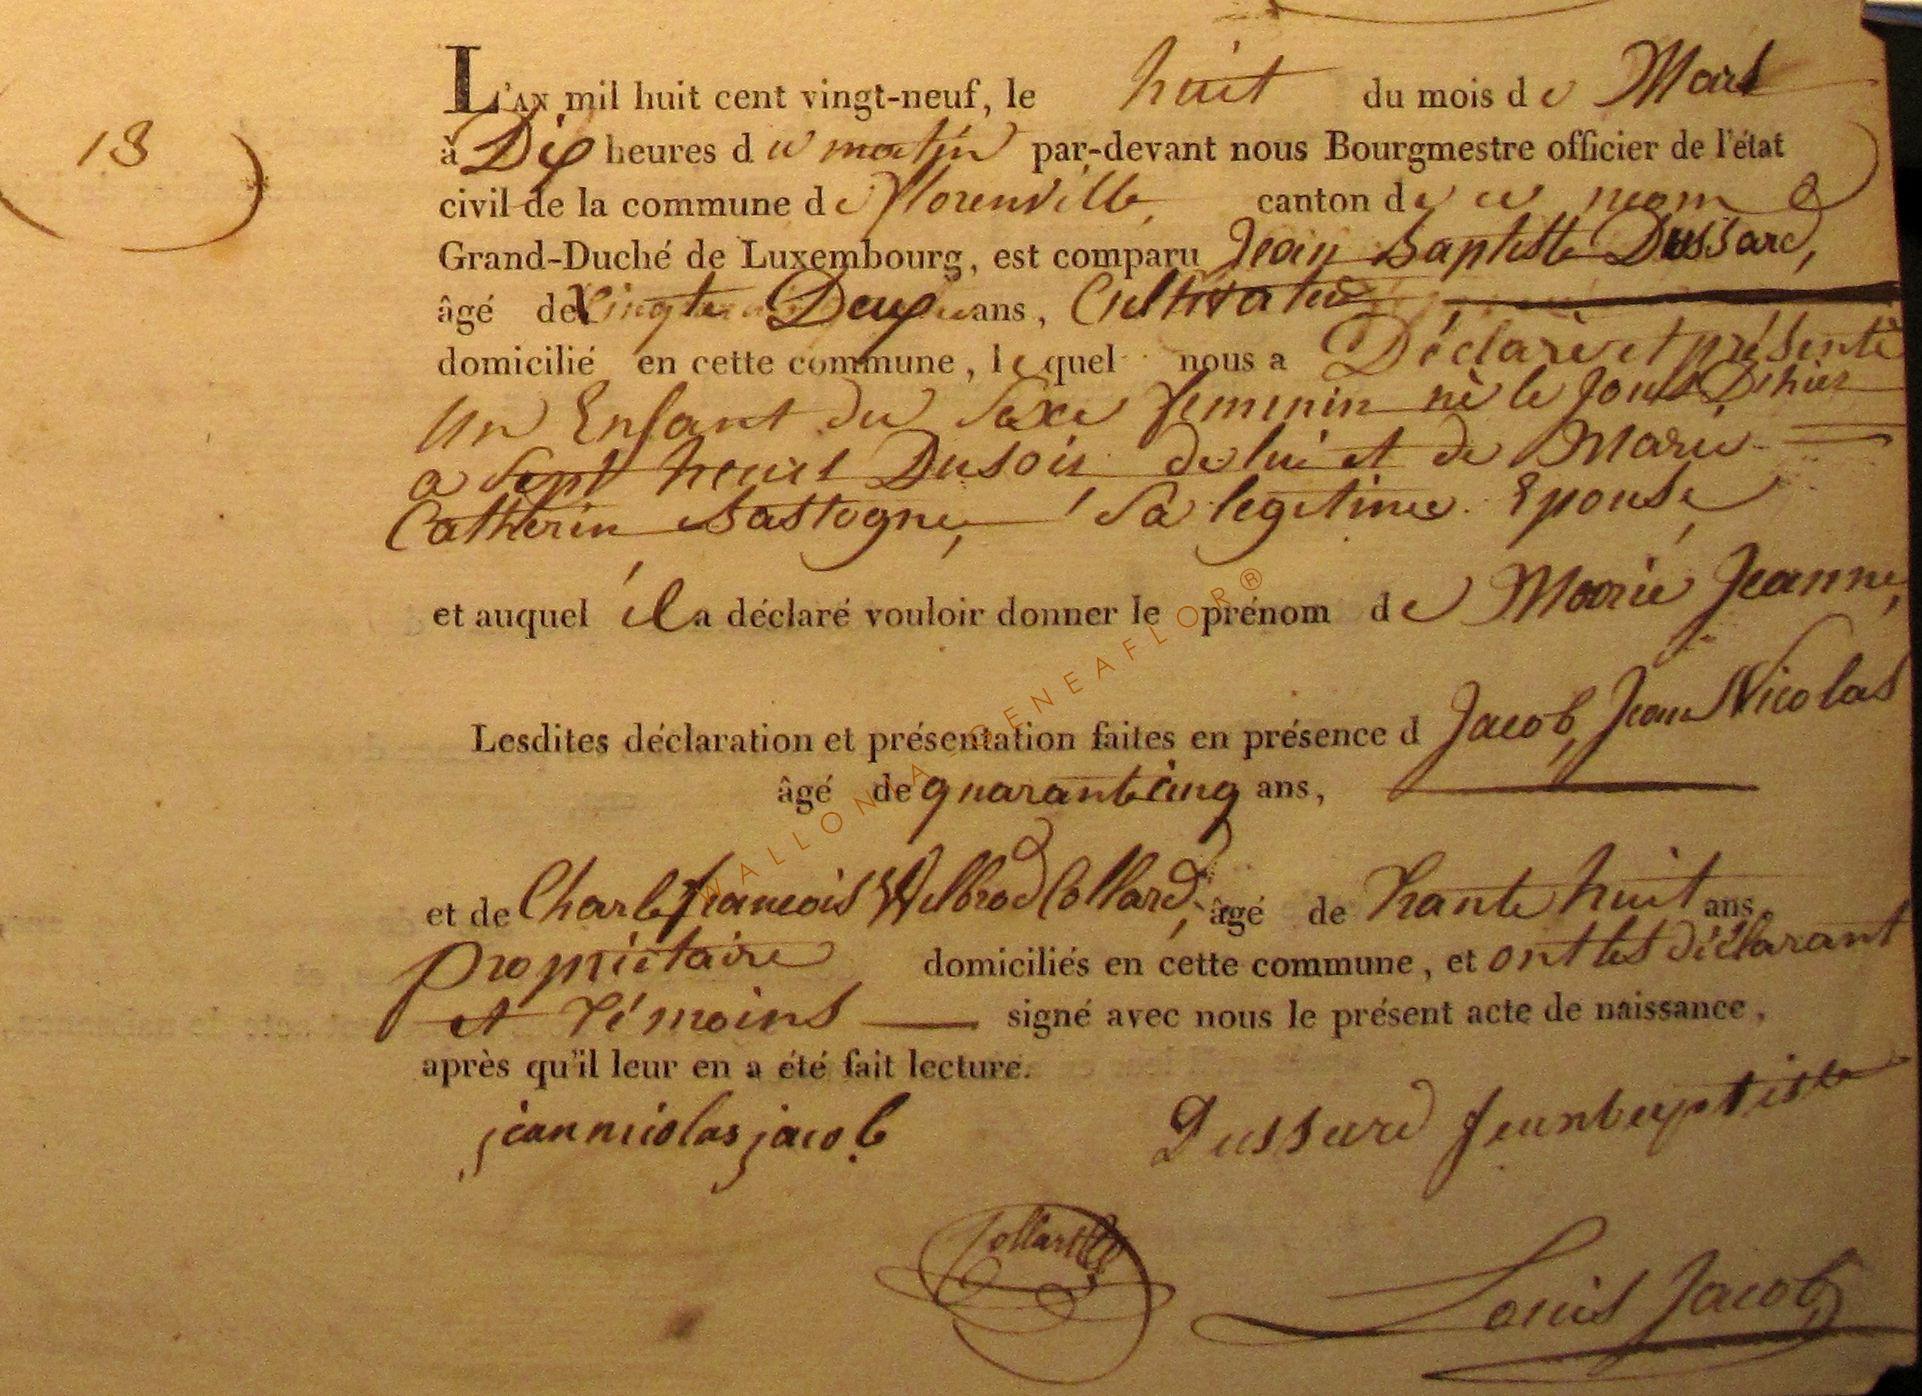 L'AN mil huit cent vingt-neuf, le huit du mois de Mars
18
à Dix heures du matin par-devant nous Bourgmestre officier de l'état
civil de la commune de florenville, canton de ce nom
Grand-Duché de Luxembourg, est comparu Jean Baptiste Dussard,
âgé de Vingte Deux ans, Cultivateur
domicilié en cette commune, lequel nous a Déclaré et présenté
Un Enfant du Sexe feminin né le Jour D'hier
a Sept heures Du soir de lui et de Marie
Catherin Bastogne, Sa legitime Epouse,
et auquel il a déclaré vouloir donner le prénom de Marie Jeanne,
Lesdites déclaration et présentation faites en présence d Jacob, Jean Nicolas
âgé de quarante cinq ans,
et de Charle francois Wilbrod Collard, âgé de Trante huit ans,
propriétaire domiciliés en cette commune, et ont les déclarant
et Témoins signé avec nous le présent acte de naissance,
après qu'il leur en a été fait lecture.
jean nicolas jacob Dussard jean baptiste
Collard
Louis Jacob
WALLONIA GENEAFLOR®